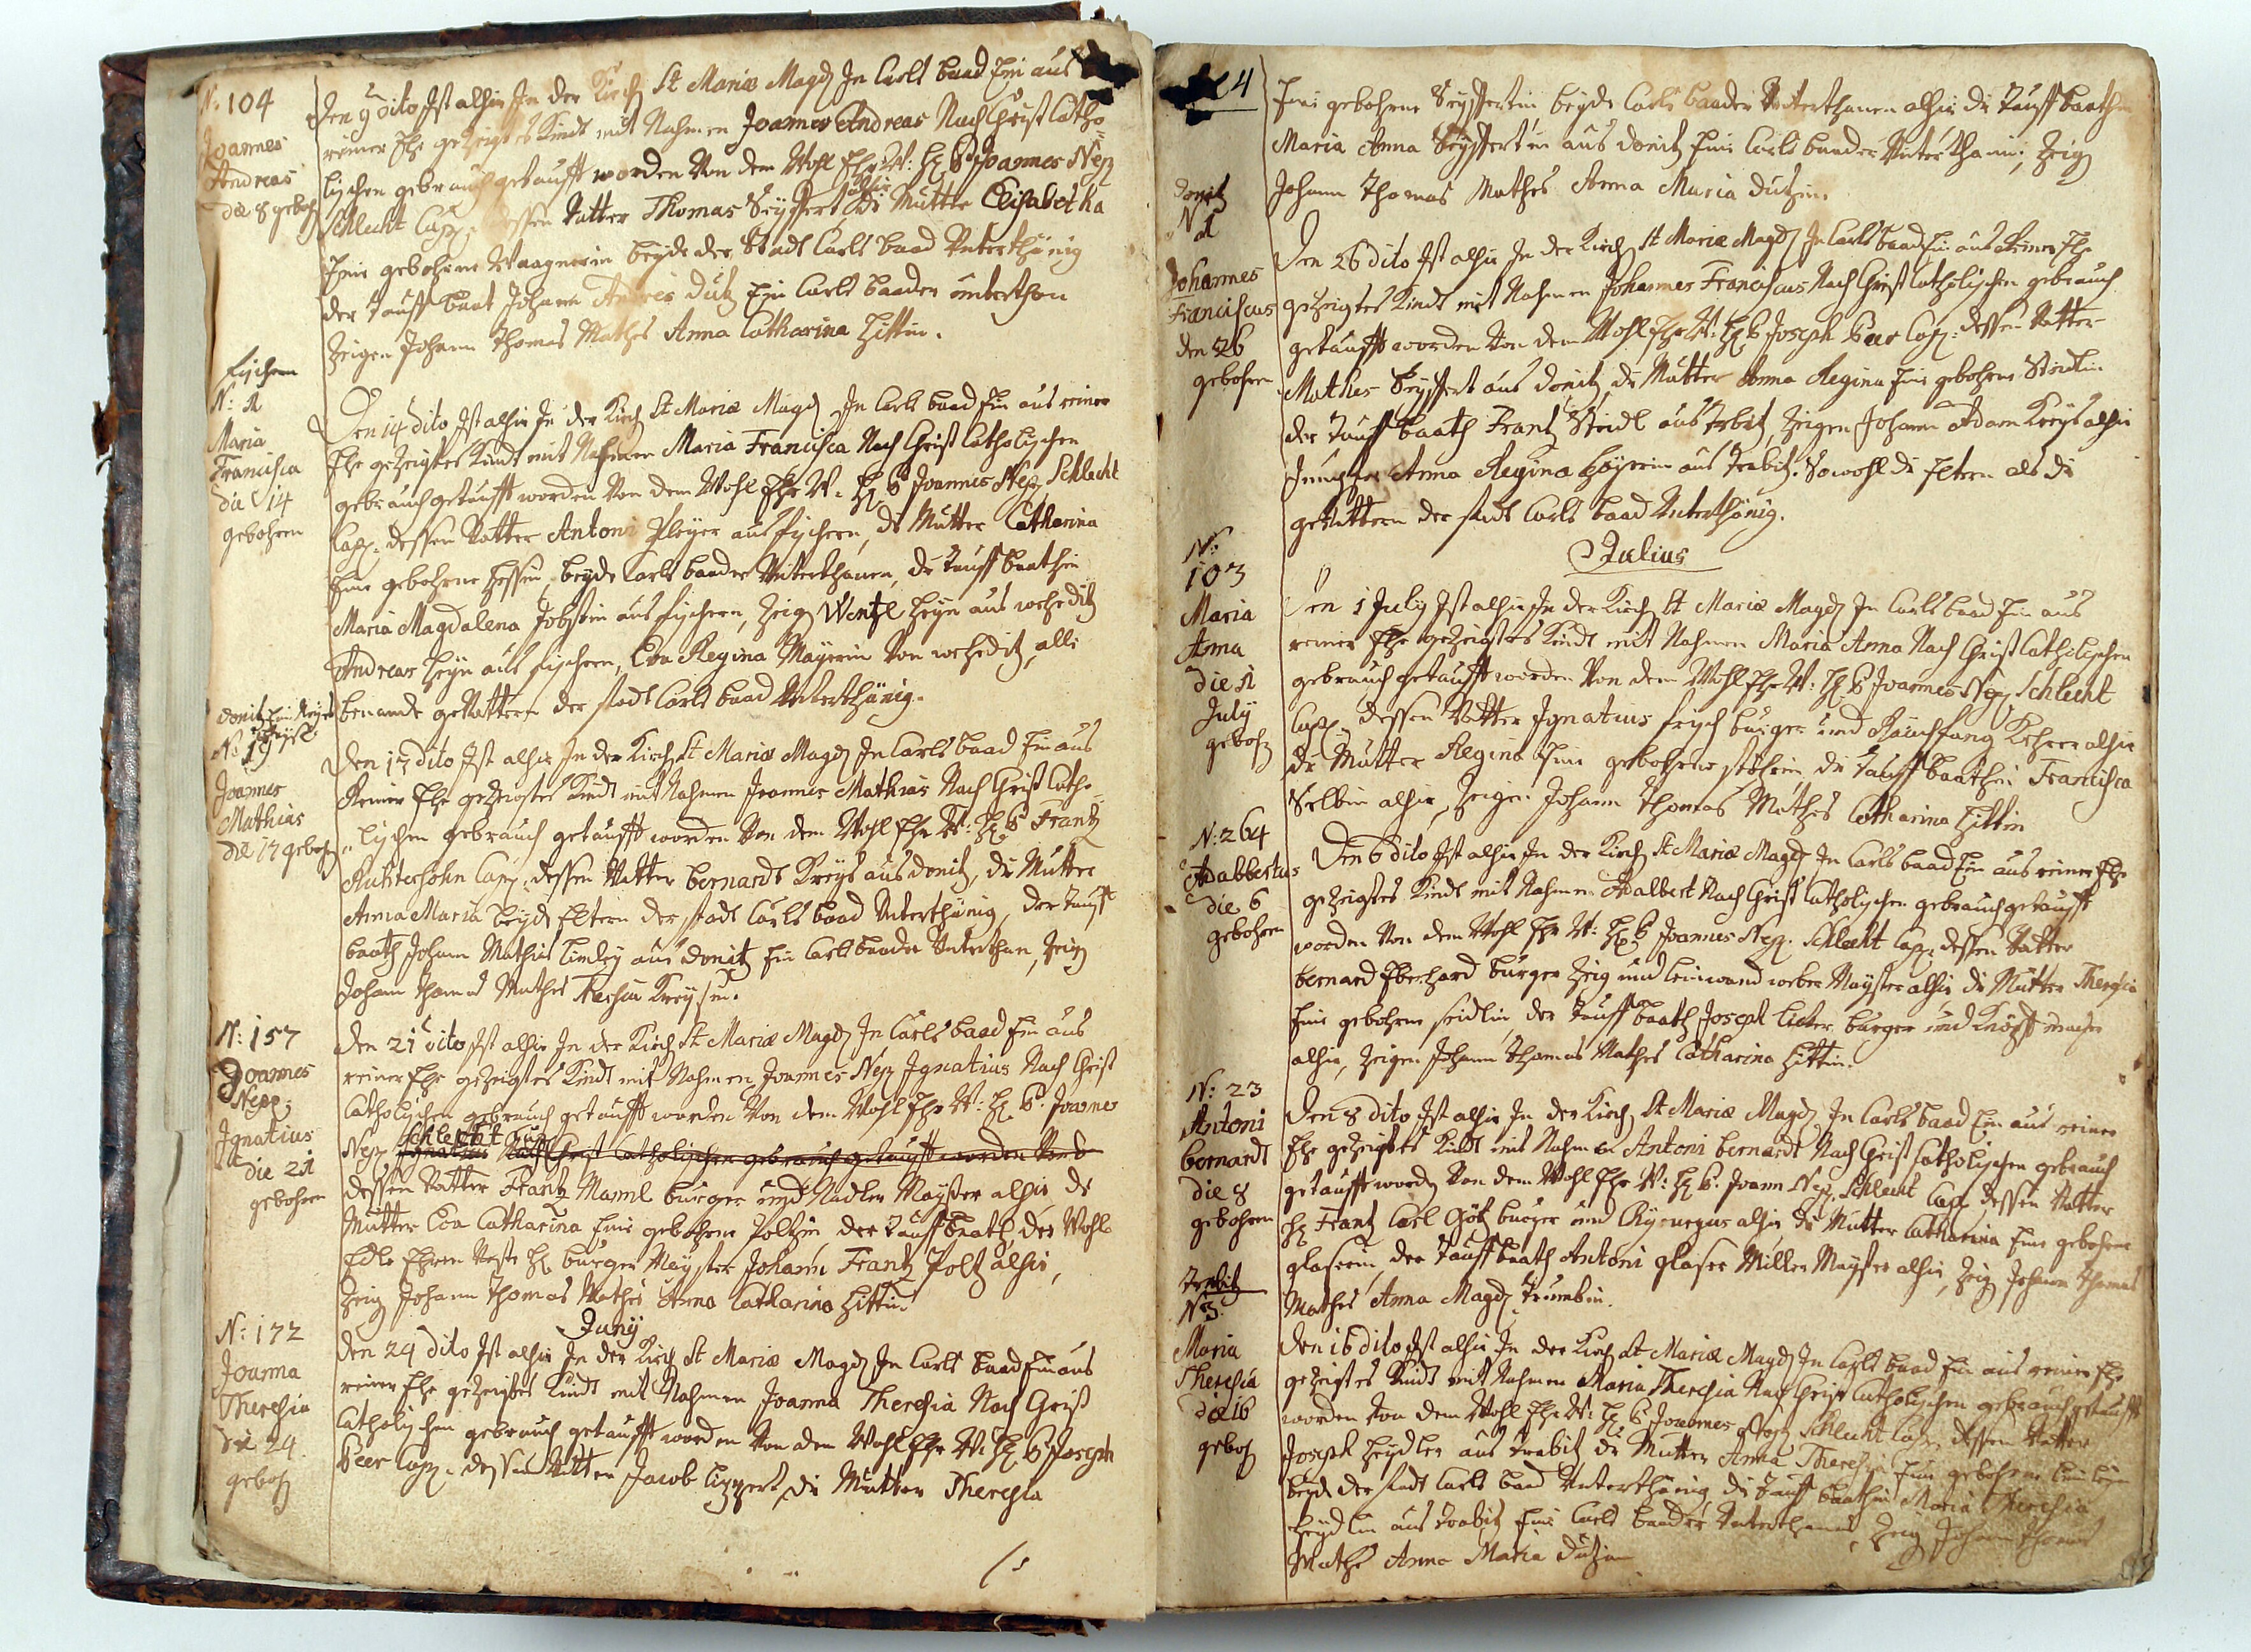 N: 104
Joannes
Andreas
die 8 geboh
Den 9 dito Ist alhir In der Kirch St Mariæ Magd In Carls baad Ein aus
reiner Ehe gezeigtes Kindt mit Nahmen Joannes Andreas Nach Christ Catho-
lischen gebrauch getaufft worden Von dem Wohl Ehr W: H P Joannes Nep
Schlecht Cap: dessen Vatter Thomas Seyffert alhir, die Mutter Elisabetha
Eine gebohrne Wagnerin beyde der Stadt Carls baad Unterthänig
der Tauff baat Johann Andres Dutz Ein Carls baader unterthan
Zeigen Johann Thomas Mathes Anna Catharina Hittin.
Fischern
N: 2
Maria
Francisca
die 14
gebohren
Den 14 dito Ist alhir In der Kirch St Mariæ Magd In Carls baad Ein aus reiner
Ehe gezeigtes Kindt mit Nahmen Maria Francisca Nach Christ Catholischen
gebrauch getaufft worden Von dem Wohl Ehr W: H P Joannes Nep Schlecht
Cap: dessen Vatter Antoni Pleyer aus Fischern, die Mutter Catharina
Eine gebohrne Hessin, beyde Carls baader Unterthanen, die Tauff baathin
Maria Magdalena Jobstin aus Fischern, Zeig Wentzl Heyn aus weheditz
Andreas Heyn aus Fischern, Eva Regina Mayerin Von weheditz, alle
benande gevattern der stadt Carls baad Unterthänig.
Donitz
N: 19
Joannes
Mathias
die 17 geboh
Den 17 dito Ist alhir In der Kirch St Mariæ Magd In Carls baad Ein aus
Reiner Ehe gezeigtes Kindt mit Nahmen Joannes Mathias Nach Christ Catho-
lischen gebrauch getaufft worden Von dem Wohl Ehr W: H P Frantz
Cap: dessen Vatter bernardt Kreys aus Donitz, die Mutter
Anna Maria beyde Eltern der stadt Carls baad Unterthänig, der Tauff
baath Johann Mathias aus Donitz Ein Carls baader Unterthan, Zeig
Johann Thomas Mathes Kreysin.
N: 157
Joannes
Nepo:
Ignatius
die 21
gebohren
Den 21 dito Ist alhir In der Kirch St Mariæ Magd In Carls baad Ein aus
reiner Ehe gezeigtes Kindt mit Nahmen Joannes Nep Ignatius Nach Christ
Catholischen gebrauch getaufft worden Von dem Wohl Ehr W: H P. Joannes
Nep Schlecht Cap Ignatius Nach Christ Catholischen gebrauch getaufft worden Von d
dessen Vatter Frantz Maml burger und Nadler Mayster alhir, die
Mutter Eva Catharina Eine gebohrne Poltzin, der Tauff baath, der Wohl
Edle Ehren Veste H burger Mayster Johann Frantz Poltz alhir,
Zeig Johann Thomas Mathes Anna Catharina Hittin.
Juny
N: 172
Joanna
Theresia
die 24
geboh
Den 24 dito Ist alhir In der Kirch St Mariæ Magd In Carls baad Ein aus
reiner Ehe gezeigtes Kindt mit Nahmen Joanna Theresia Nach Christ
Catholischen gebrauch getaufft worden Von dem Wohl Ehr W: H P Joseph
Peer Cap: dessen Vatter Jacob Lippert die Mutter Theresia
4
Eine gebohrne Seyffertin, beyde Carls baader Unterthanen alhir die Tauff baathin
Maria Anna Seyffertin aus Donitz Eine Carls baader Unterthanin, Zeig
Johann Thomas Mathes Anna Maria Dutzin.
Donitz
N 1
Johannes
Franciscus
den 26
gebohren
Den 26 dito Ist alhir In der Kirch St Mariæ Magd In Carls baad Ein aus Reiner Ehe
gezeigtes Kindt mit Nahmen Johannes Franciscus Nach Christ Catholischen gebrauch
getaufft worden Von dem Wohl Ehr W: H P Joseph Peer Cap: dessen Vatter
Mathes Seyffert aus Donitz, die Mutter Anna Regina Eine gebohrne Steidlin
der Tauff baath Frantz Steidl aus, Zeigen Johann Adam Kreys alhir
Anna Regina aus Drabitz. Sowohl die Eltern als die
gevattern der stadt Carls baad Unterthänig.
Julius
N:
103
Maria
Anna
die 1
July
geboh
Den 1 July Ist alhir In der Kirch St Mariæ Magd In Carls baad Ein aus
reiner Ehe gezeigtes Kindt mit Nahmen Maria Anna Nach Christ Catholischen
gebrauch getaufft worden Von dem Wohl Ehr W: H P Joannes Nep Schlecht
Cap: dessen Vatter Ignatius burger und Rauchfang Kehrer alhir
die Mutter Regina Eine gebohrne, die Tauff baathin Francisca
alhir, Zeigen Johann Thomas Mathes Catharina Hittin
N: 264
Adalbertus
die 6
gebohren
Den 6 dito Ist alhir In der Kirch St Mariæ Magd In Carls baad Ein aus reiner Ehe
gezeigtes Kindt mit Nahmen Adalbert Nach Christ Catholischen gebrauch getaufft
worden Von dem Wohl Ehr W: H P Joannes Nep. Schlecht Cap: dessen Vatter
bernard Eberhard burger Zeig und leinwand weber Mayster alhir, die Mutter Theresia
Eine gebohrne seidlin, der Tauff baath Joseph burger und Knopff macher
alhir, Zeigen Johann Thomas Mathes Catharina Hittin.
N: 23
Antoni
bernardt
die 8
gebohren
Den 8 dito Ist alhir In der Kirch St Mariæ Magd In Carls baad Ein aus reiner
Ehe gezeigtes Kindt mit Nahmen Antoni bernardt Nach Christ Catholischen gebrauch
getaufft word Von dem Wohl Ehr W: H P. Joann Nep. Schlecht Cap dessen Vatter
H Frantz Carl Götz burger und Chyrurgus alhir, die Mutter Catharina Eine gebohrne
glaserin, der Tauff baath Antoni glaser Müller Mayster alhir, Zeig Johann Thomas
Mathes Anna Magd.
Drabitz
N 3.
Maria
Theresia
die 16
geboh
Den 16 dito Ist alhir In der Kirch St Mariæ Magd In Carls baad Ein aus reiner Ehe
gezeigtes Kindt mit Nahmen Maria Theresia Nach Christ Catholischen gebrauch getaufft
worden Von dem Wohl Ehr W: H P Joannes Nep Schlecht Cap: dessen Vatter
Joseph Heydler aus Drabitz, die Mutter Anna Theresia Eine gebohrne
beyde der stadt Carls baad Unterthänig die Tauff baathin Maria Theresia
aus Drabitz Eine Carls baader Unterthanin, Zeig Johann Thomas
Mathes Anna Maria Dutzin